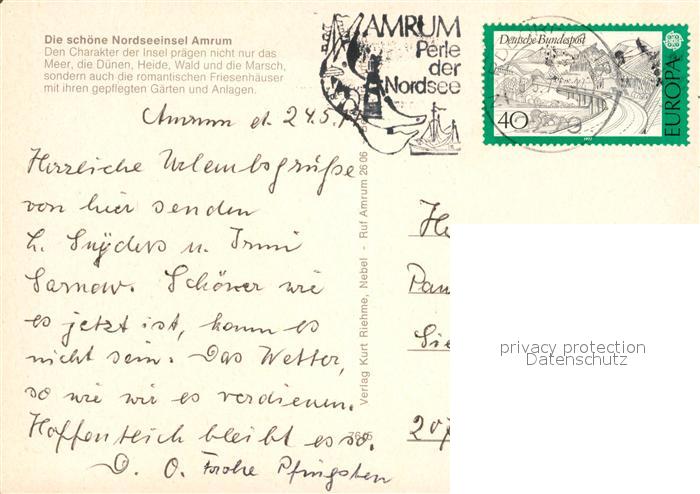 Die schöne Nordseeinsel Amrum
Den Charakter der Insel prägen nicht nur das
Meer, die Dünen, Heide, Wald und die Marsch,
sondern auch die romantischen Friesenhäuser
mit ihren gepflegten Gärten und Anlagen.
AMRUM
Perle
der
Nordsee
Deutsche Bundespost
EUROPA
40
Amrum d. 24.5.
Herzliche Urlaubsgrüße
von hier senden
L. Snÿders u. Irmi
Sarnow. Schöner wie
es jetzt ist, kann es
nicht sein. Das Wetter,
so wie wir es verdienen.
Hoffentlich bleibt es so.
D. O. Frohe Pfingsten
Verlag Kurt Riehme, Nebel - Ruf Amrum 26 06
He
Pau
Sie
207
privacy protection
Datenschutz